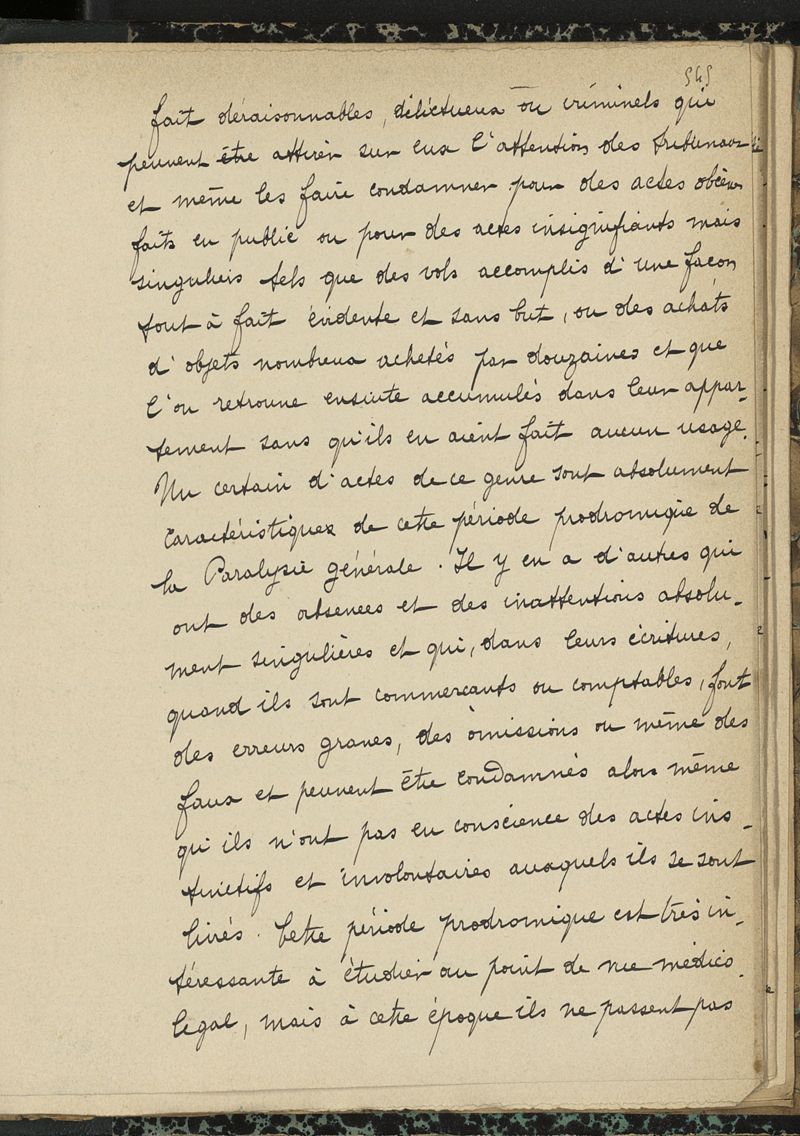 545
fait déraisonnables, délictueux ou criminels qui
peuvent être attirer sur eux l'attention des tribunaux
et même les faire condamner pour des actes obcènes
faits en public ou pour des actes insignifiants mais
singuliers tels que des vols accomplis d'une façon
tout à fait évidente et sans but, ou des achats
d'objets nombreux achetés par douzaines et que
l'on retrouve ensuite accumulés dans leur appar-
tement sans qu'ils en aient fait aucun usage.
Un certain d'actes de ce genre sont absolument
caractéristiques de cette période prodromique de
la Paralysie générale. Il y en a d'autres qui
ont des absences et des inattentions absolu-
ment singulières et qui, dans leurs écritures,
quand ils sont commerçants ou comptables, font
des erreurs graves, des omissions ou même des
faux et peuvent être condamnés alors même
qu'ils n'ont pas eu conscience des actes ins-
tinctifs et involontaires auxquels ils se sont
livrés. Cette période prodromique est très in-
téressante à étudier au point de vue médico-
légal, mais à cette époque ils ne passent pas